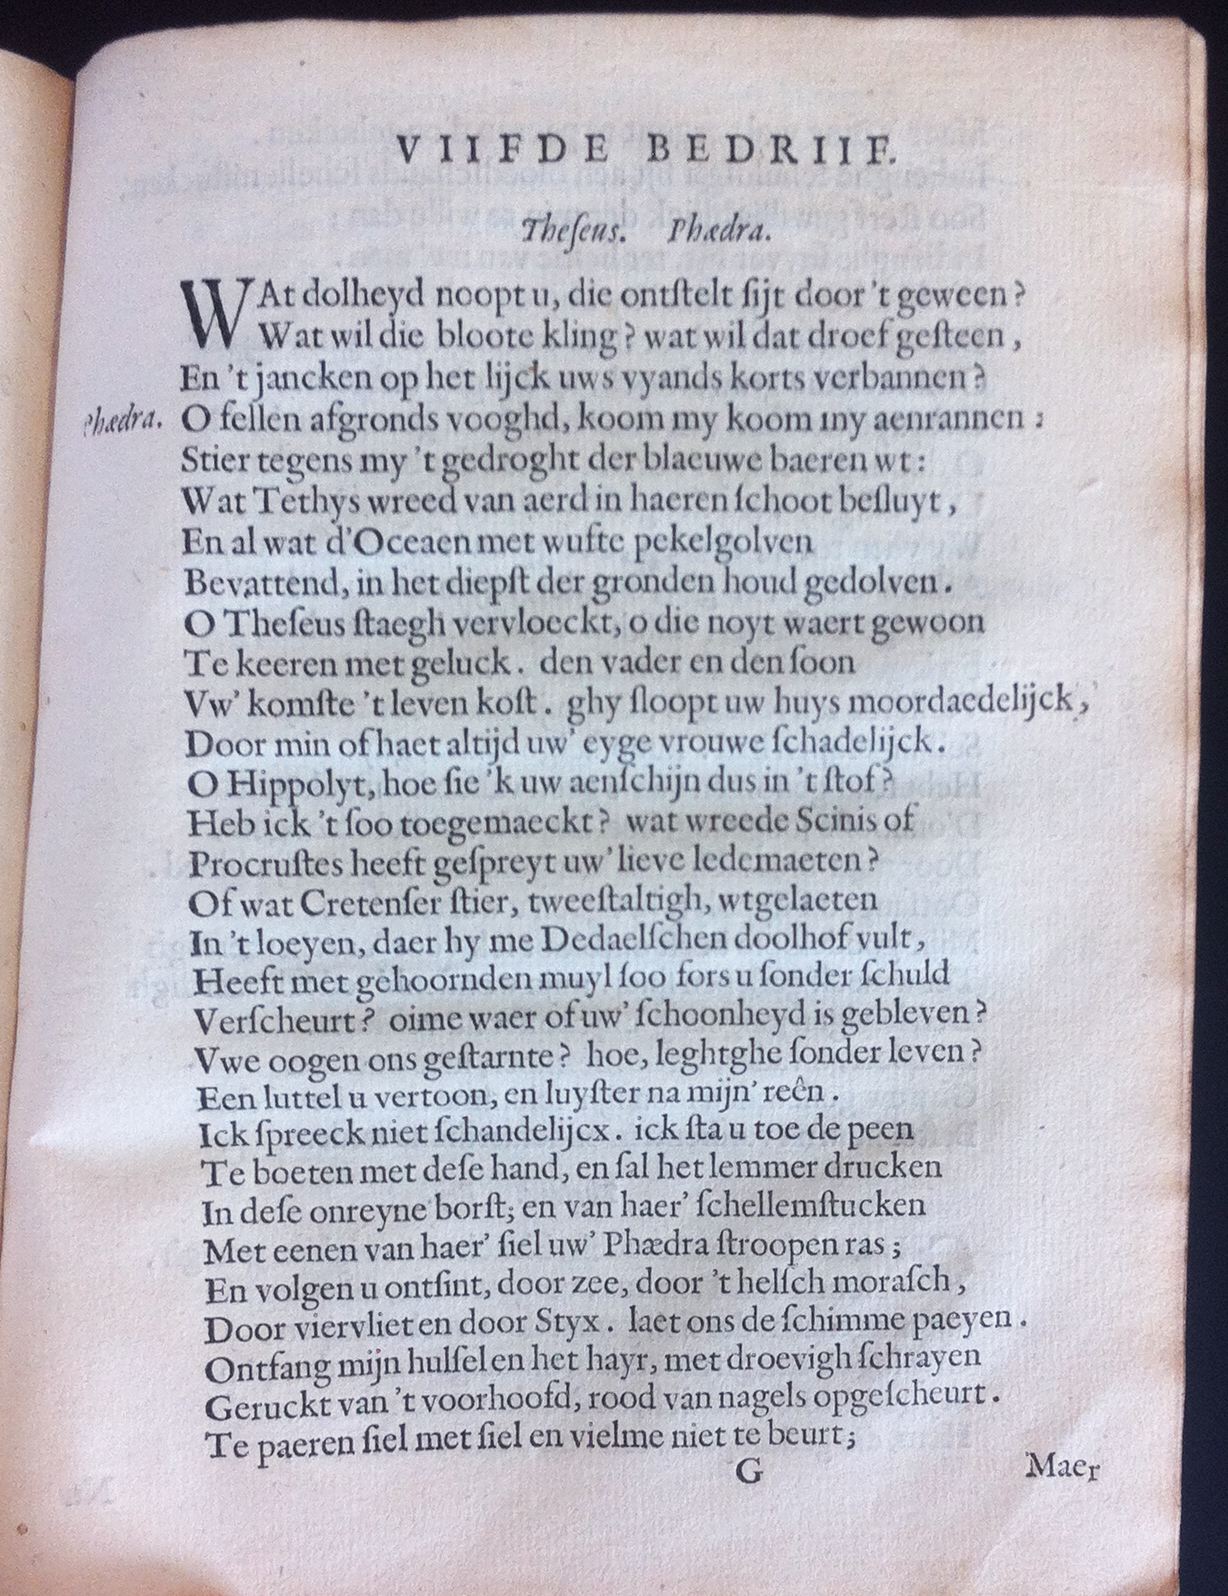 VIIFDE BEDRIIF.
Theſeus. Phædra.
WAt dolheyd noopt u, die ontſtelt ſijt door 't geween?
Wat wil die bloote kling? wat wil dat droef geſteen,
En 't jancken op het lijck uws vyands korts verbannen?
Phædra. O fellen afgronds vooghd, koom my koom my aenrannen:
Stier tegens my 't gedroght der blaeuwe baeren wt:
Wat Tethys wreed van aerd in haeren ſchoot beſluyt,
En al wat d'Oceaen met wufte pekelgolven
Bevattend, in het diepſt der gronden houd gedolven.
O Theſeus ſtaegh vervloeckt, o die noyt waert gewoon
Te keeren met geluck. den vader en den ſoon
Vw' komſte 't leven koſt. ghy ſloopt uw huys moordaedelijck,
Door min of haet altijd uw' eyge vrouwe ſchadelijck.
O Hippolyt, hoe ſie 'k uw aenſchijn dus in 't ſtof?
Heb ick 't ſoo toegemaeckt? wat wreede Scinis of
Procruſtes heeft geſpreyt uw' lieve ledemaeten?
Of wat Cretenſer ſtier, tweeſtaltigh, wtgelaeten
In 't loeyen, daer hy me Dedaelſchen doolhof vult,
Heeft met gehoornden muyl ſoo fors u ſonder ſchuld
Verſcheurt? oime waer of uw' ſchoonheyd is gebleven?
Vwe oogen ons geſtarnte? hoe, leghtghe ſonder leven?
Een luttel u vertoon, en luyſter na mijn' reên.
Ick ſpreeck niet ſchandelijcx. ick ſta u toe de peen
Te boeten met deſe hand, en ſal het lemmer drucken
In deſe onreyne borſt; en van haer' ſchellemſtucken
Met eenen van haer' ſiel uw' Phædra ſtroopen ras;
En volgen u ontſint, door zee, door 't helſch moraſch,
Door viervliet en door Styx. laet ons de ſchimme paeyen.
Ontfang mijn hulſel en het hayr, met droevigh ſchrayen
Geruckt van 't voorhoofd, rood van nagels opgeſcheurt.
Te paeren ſiel met ſiel en vielme niet te beurt;
G Maer